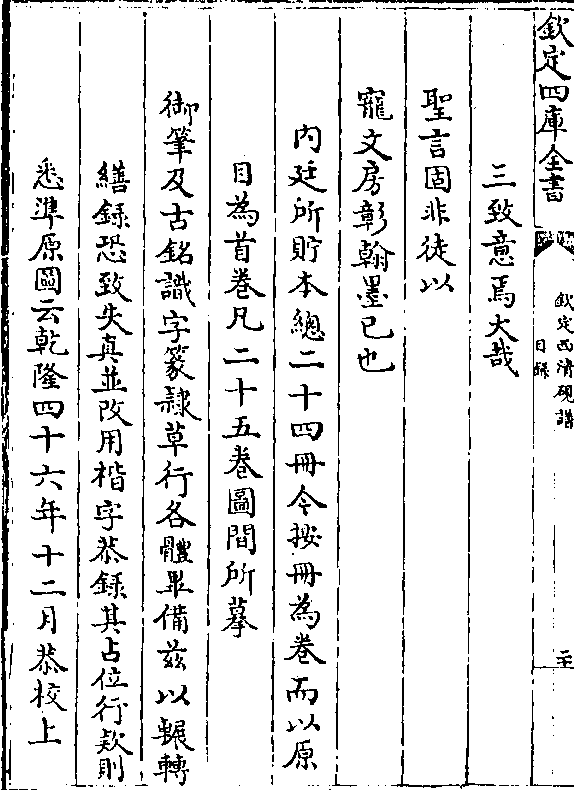 欽定四庫全書
欽定西清硯譜
目錄
三致意焉大哉
聖言固非徒以
寵文房彰翰墨已也
内廷所貯本總二十四冊今按冊為巻而以原
目為首巻凡二十五巻圖間所摹
御筆及古銘識字篆隷草行各體畢備兹以輾轉
繕録恐致失真並改用楷字恭録其占位行欵則
悉準原圖云乾隆四十六年十二月恭校上